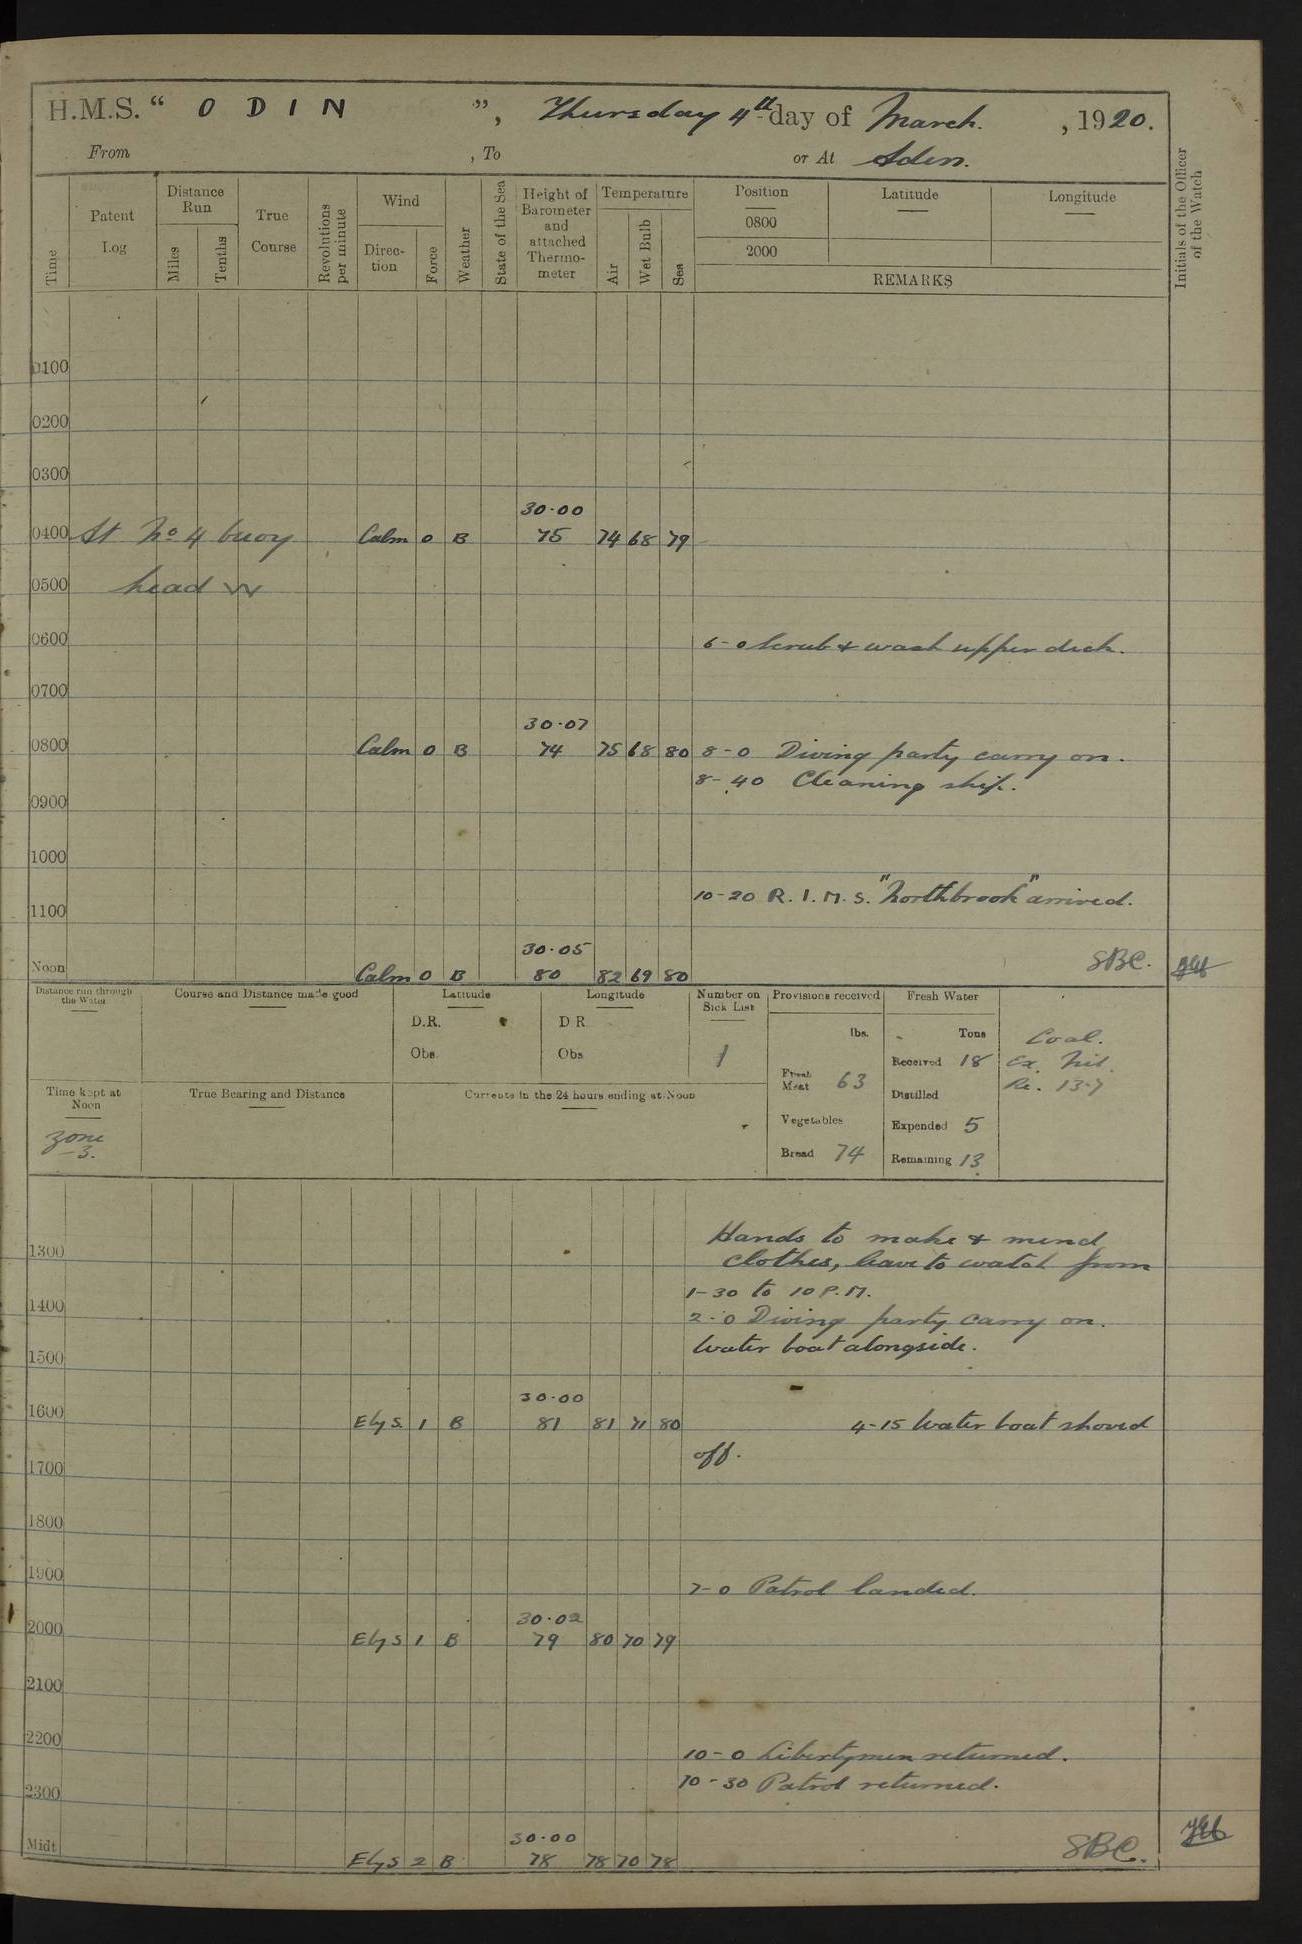 H.M.S. “ ODIN ”, Thursday 4th day of March. , 1920.
From , To or At Aden.
Time
Patent Log
Distance Run
Miles
Tenths
True Course
Revolutions per minute
Wind
Direction
Force
Weather
State of the Sea
Height of Barometer and attached Thermometer
Temperature
Air
Wet Bulb
Sea
Position
0800
2000
Latitude
Longitude
REMARKS
Initials of the Officer of the Watch
0100
0200
0300
30·00
0400 At No 4 buoy Calm 0 B 75 74 68 79
0500 head W
0600 6-0 Scrub & wash upper deck.
0700
30·07
0800 Calm 0 B 74 75 68 80 8-0 Diving party carry on.
8-40 Cleaning ship.
0900
1000
10-20 R.I.M.S. "Northbrook" arrived.
1100
30·05
Noon Calm 0 B 80 82 69 80 SBC.
Distance run through the Water
Course and Distance made good
Latitude
D.R.
Obs.
Longitude
D R
Obs
Number on Sick List
1
Provisions received
lbs.
Fresh Meat 63
Vegetables
Bread 74
Fresh Water
Tons
Received 18
Distilled
Expended 5
Remaining 13
Coal.
Ex. Nil.
Re. 137
Time kept at Noon
Zone -3.
True Bearing and Distance
Currents in the 24 hours ending at Noon
Hands to make & mend
1300 clothes, leave to watch from
1-30 to 10 P.M.
1400 2-0 Diving party carry on.
Water boat alongside.
1500
30·00
1600 E by S. 1 B 81 81 71 80 4-15 Water boat shoved
off.
1700
1800
1900 7-0 Patrol landed.
30·02
2000 E by S 1 B 79 80 70 79
2100
2200 10-0 Libertymen returned.
10-30 Patrol returned.
2300
30·00
Midt E by S 2 B 78 78 70 78 SBC.